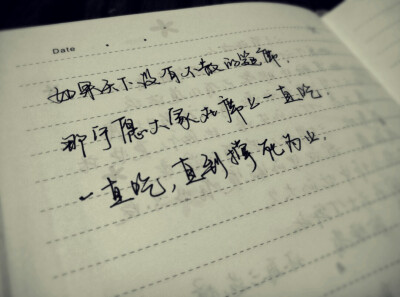 Date
如果天下没有不散的筵席
那宁愿大家在席上一直吃,
一直吃，直到撑死为止.